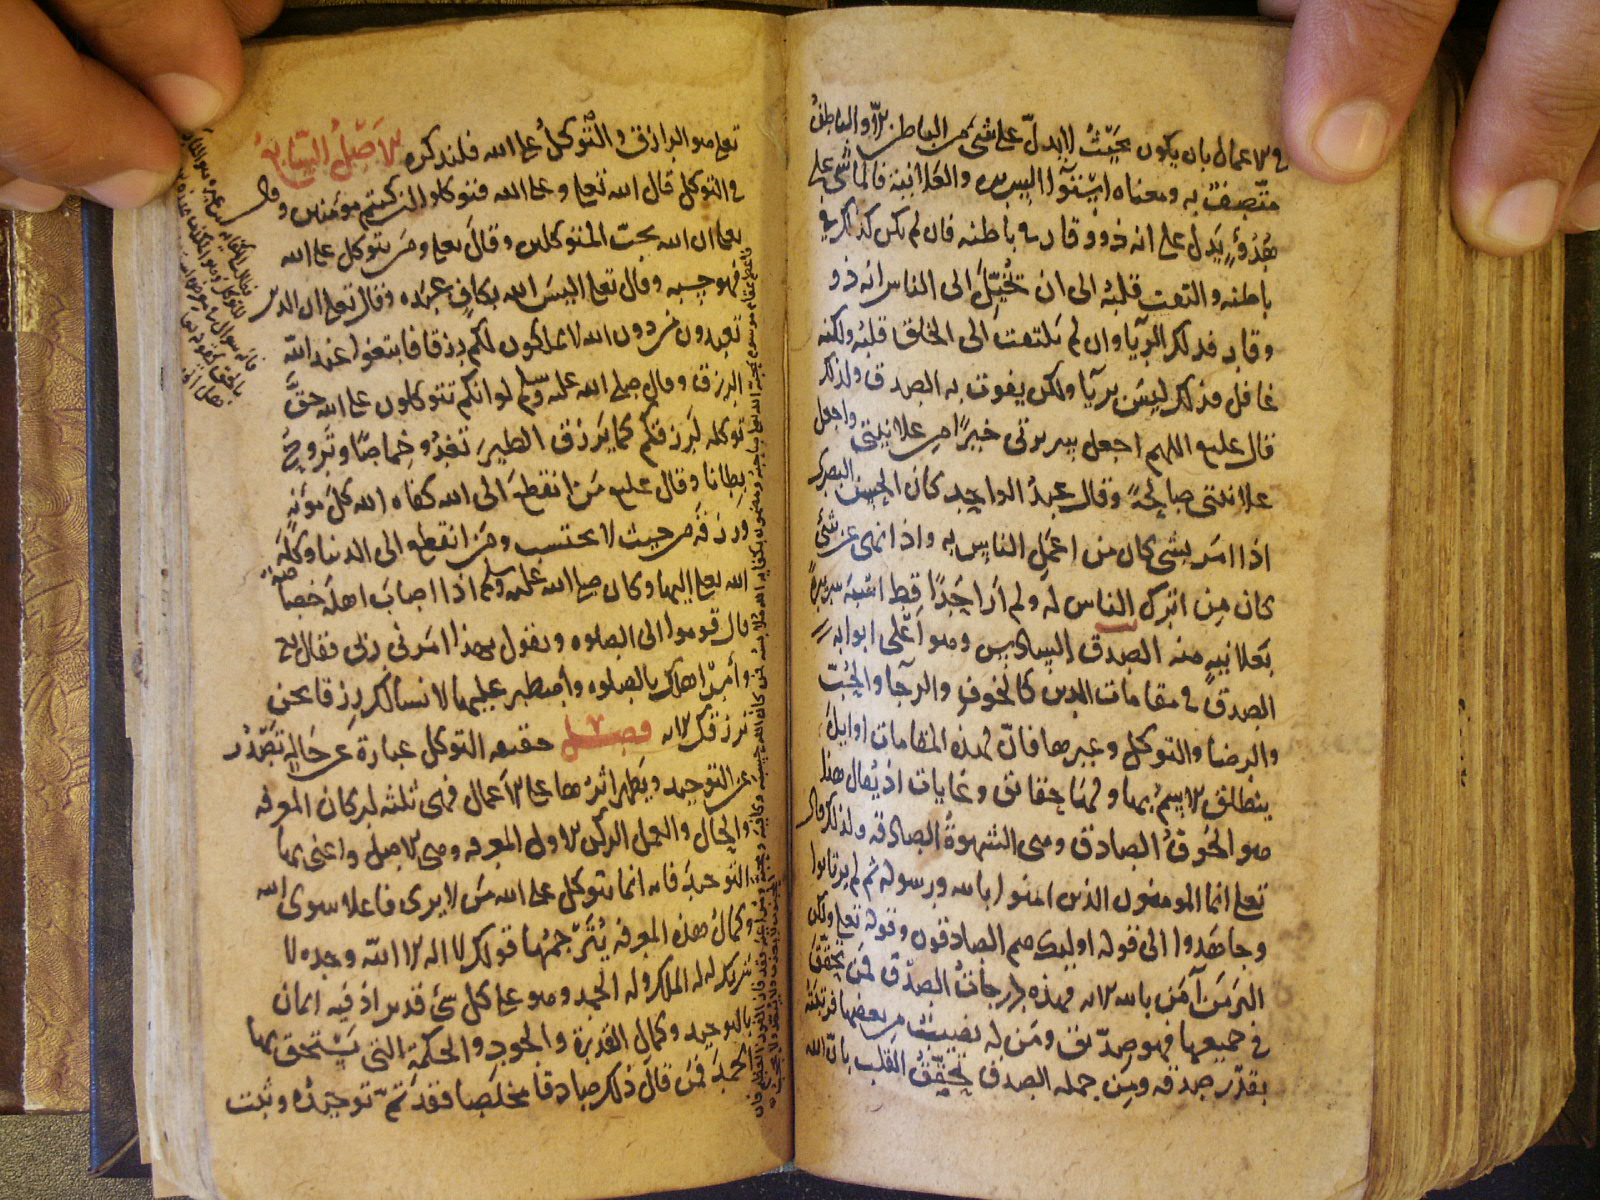 في الاعمال بان يكون بحيث لا يدل على شئ من الباطن الا و الباطن
متصف به ومعناه استوآ السريره والعلانية فالماشي على
هدوء يدل على انه ذو وقار في باطنه فان لم يكن كذلك في
باطنه والتفت قلبه الى ان تخيل الى الناس انه ذو
وقار فذلك الريآ وان لم يلتفت الى الخلق قلبه ولكنه
غافل فذلك ليس بريآ ولكن يفوت به الصدق ولذلك
قال عليه اللهم اجعل سريرتي خيرا من علانيتي واجعل
علانيتي صالحة وقال عبد الواحد كان الحسن البصري
اذا امر بشئ كان من اعمل الناس به واذا نهى عن شئ
كان من اترك الناس له ولم ار احدا قط اشبه سريرة
بعلانية منه الصدق السادس وهو اعلى ابوابه
الصدق في مقامات الدين كالخوف والرجآ والحب
والرضا والتوكل وغيرها فان لهذه المقامات اوايل
ينطلق الاسم بها ولها حقائق وغايات اذ يقال هذا
هو الخوف الصادق وهي الشهوة الصادقه ولذلك قال
تعلى انما المومنون الذين امنوا بالله ورسوله ثم لم يرتابوا
وجاهدوا الى قوله اوليك هم الصادقون وقوله تعلى ولكن
البر من آمن بالله الايه فهذه درجات الصدق فمن تحقق
في جميعها فهو صديق ومن له نصيب من بعضها فرتبته
بقدر صدقه ومن جملة الصدق تحقق القلب بان الله
تعلى هو الرازق والتوكل على الله فلنذكره الاصل السابع
في التوكل قال الله تعلى وعلى الله فتوكلوا ان كنتم مؤمنين وقال
تعلى ان الله يحب المتوكلين وقال تعلى ومن يتوكل على الله
فهو حسبه وقال تعلى اليس الله بكاف عبده وقال تعلى ان الذين
تعبدون من دون الله لا يملكون لكم رزقا فابتغوا عند الله
الرزق وقال صلى الله عليه وسلم لو انكم تتوكلون على الله حق
توكله لرزقكم كما يرزق الطير تغدو خماصا وتروح
بطانا وقال عليه من انقطع الى الله كفاه الله كل مؤنه
ورزقه من حيث لا يحتسب ومن انقطع الى الدنيا وكله
الله تعلى اليها وكان صلى الله عليه وسلم اذا اصاب اهله خصاصة
قال قوموا الى الصلوه ويقول بهذا امرني ربي فقال تع
وأمر اهلك بالصلوه واصطبر عليها لا نسالك رزقا نحن
نرزقك الايه فصل حقيقه التوكل عبارة عن حالة تصدر
عن التوحيد ويظهر اثرها على الاعمال فهي ثلثه اركان المعرفه
والحال والعمل الركن الاول المعرفه وهي الاصل واعني بها
التوحيد فانه انما يتوكل على الله من لا يرى فاعلا سوى الله
وكمال هذه المعرفه يترجمها قولك لا اله الا الله وحده لا
شريك له له الملك وله الحمد وهو على كل شئ قدير اذ فيه ايمان
بالتوحيد وكمال القدرة والجود والحكمة التي يستحق بها
الحمد فمن قال ذلك صادقا مخلصا فقد تم توحيده وثبت